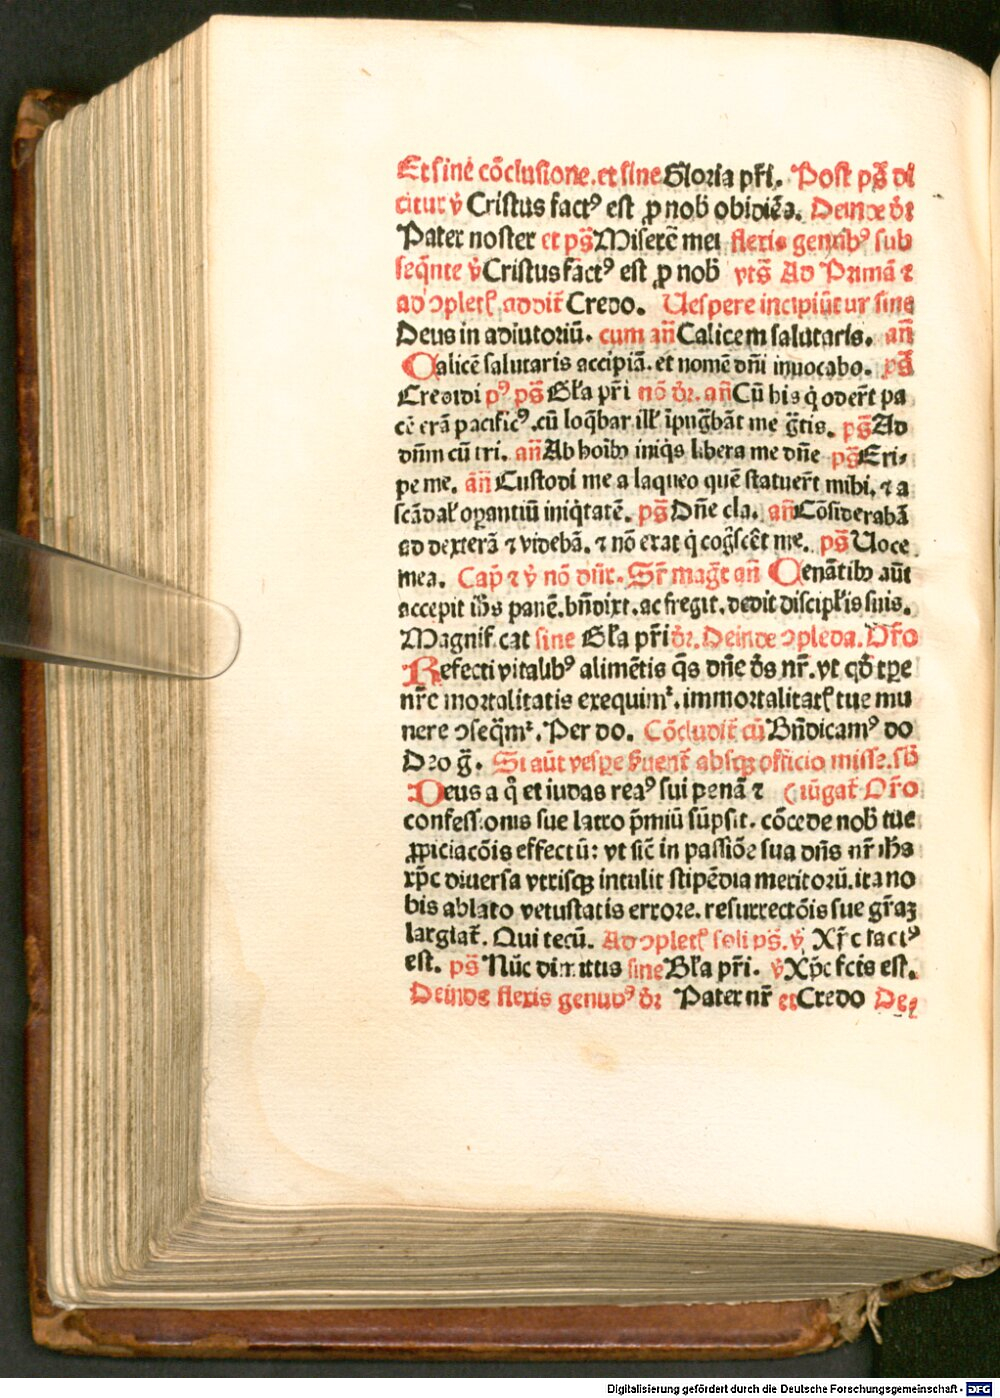 Et sine cōclusione. et sine Gloria pr̄i. Post ps̄ di
citur v̇ Cristus factꝰ est ꝓ nob̄ obidiēs. Deinde dr̄
Pater noster et ps̄ Miserē mei flexis genibꝰ sub
seq̄nte v̇ Cristus factꝰ est ꝓ nob̄ vts̄ Ad Primā ⁊
ad ꝯpletꝭ addit̄ Credo. Uespere incipiūtur sine
Deus in adiutoriū. cum an̄ Calicem salutaris. an̄
Calicē salutaris accipiā. et nomē dn̄i inuocabo. ps̄
Credidi pꝰ ps̄ Gl̄a pr̄i nō dr̄. an̄ Cū his q̇ oder̄t pa
cē erā pacificꝰ. cū loq̄bar ill̄ īpuḡbāt me gr̄tis. ps̄ Ad
dn̄m cū tri. an̄ Ab hoīb iniq̇s libera me dn̄e ps̄ Eri-
pe me. an̄ Custodi me a laqueo quē statuer̄t mihi. ⁊ a
scādal̄ oꝑantiū iniq̇tatē. ps̄ Dn̄e cla. an̄ Cōsiderabā
ad dexterā ⁊ videbā. ⁊ nō erat q̇ cogn̄scēt me. ps̄ Uoce
mea. Cap̄ ⁊ v̇ nō dn̄r. Sr̄ mag̅t an̄ Cenātib aūt
accepit ih̄s panē. bn̄dixt. ac fregit. dedit discipl̄is suis.
Magnificat sine Gl̄a pr̄i dr̄. Deinde ꝯpleda. Or̄o
Refecti vitalibꝰ alimētis q̄s dn̄e ds̄ nr̄. vt qd̄ tꝑe
nr̄e mortalitatis exequimᷣ. immortalitatꝭ tue mu
nere ꝯseq̄mᷣ. Per do. Cōcludit̄ cū Bn̄dicamꝰ do
Deo g̅. Si aūt vesꝑe ẜuent̄ absqꝫ officio misse. sb̄
Deus a q̊ et iudas reaꝰ sui penā ⁊ (iūgat̄ Or̄o
confessionis sue latro p̄miū sūpsit. cōcede nob̄ tue
ꝓpiciacōis effectū: vt sic̄ in passiōe sua dn̄s nr̄ ih̄s
xp̄c diuersa vtrisqꝫ intulit stipēdia meritoꝝ. ita no
bis ablato vetustatis errore. resurrectōis sue gr̄aꝫ
largiat̄. Qui tecū. Ad ꝯpletꝭ soli ps̄. v̇ Xp̄c factꝰ
est. ps̄ Nūc dimittis sine Gl̄a pr̄i. v̇ Xp̄c fc̄tꝰ est.
Deinde flexis genubꝰ dr̄ Pater nr̄ et Credo De-
Digitalisierung gefördert durch die Deutsche Forschungsgemeinschaft - DFG